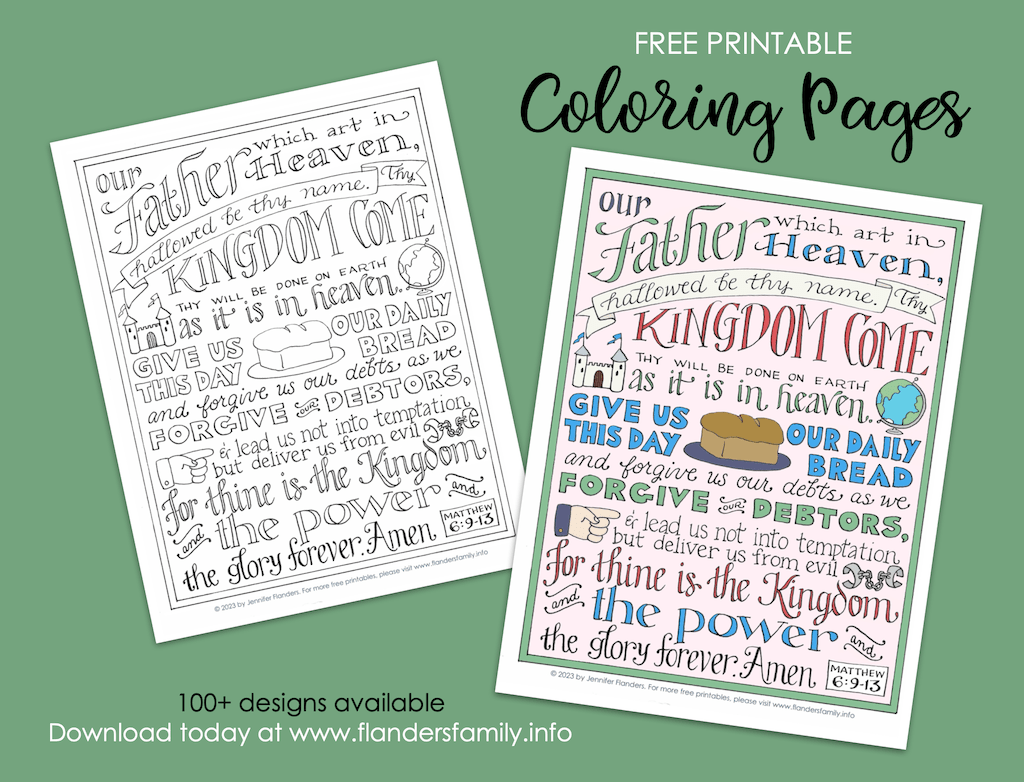 FREE PRINTABLE
Coloring Pages
our
Father
which art in
Heaven,
hallowed be thy name. Thy
KINGDOM COME
THY WILL BE DONE ON EARTH
as it is in heaven.
GIVE US
THIS DAY
OUR DAILY
BREAD
and forgive us our debts as we
FORGIVE OUR DEBTORS,
& lead us not into temptation,
but deliver us from evil
for thine is the Kingdom
and the power and
the glory forever. Amen
MATTHEW
6:9-13
© 2023 by Jennifer Flanders. For more free printables, please visit www.flandersfamily.info
our
Father
which art in
Heaven,
hallowed be thy name. Thy
KINGDOM COME
THY WILL BE DONE ON EARTH
as it is in heaven.
GIVE US
THIS DAY
OUR DAILY
BREAD
and forgive us our debts as we
FORGIVE OUR DEBTORS,
& lead us not into temptation,
but deliver us from evil
for thine is the Kingdom
and the power and
the glory forever. Amen
MATTHEW
6:9-13
© 2023 by Jennifer Flanders. For more free printables, please visit www.flandersfamily.info
100+ designs available
Download today at www.flandersfamily.info